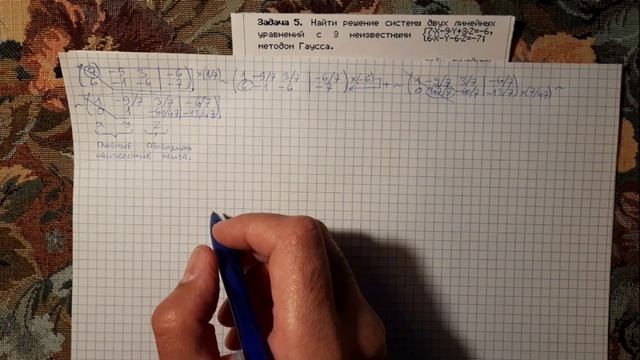 Задача 5. Найти решение системы двух линейных
уравнений с 3 неизвестными {7·X-9·Y+3·Z=-6,
методом Гаусса. {6·X-Y-6·Z=-7;
(7 -9 3 | -6) ×(1/7) ~ (1 -9/7 3/7 | -6/7) ×(-6) ~ (1 -9/7 3/7 | -6/7) ~
(6 -1 -6 | -7) (6 -1 -6 | -7) + (0 47/7 -60/7 | -13/7) ×(7/47)
~ (1 -9/7 3/7 | -6/7)
(0 1 | -13/47)
x y z
главные свободная
неизвестные неизв.